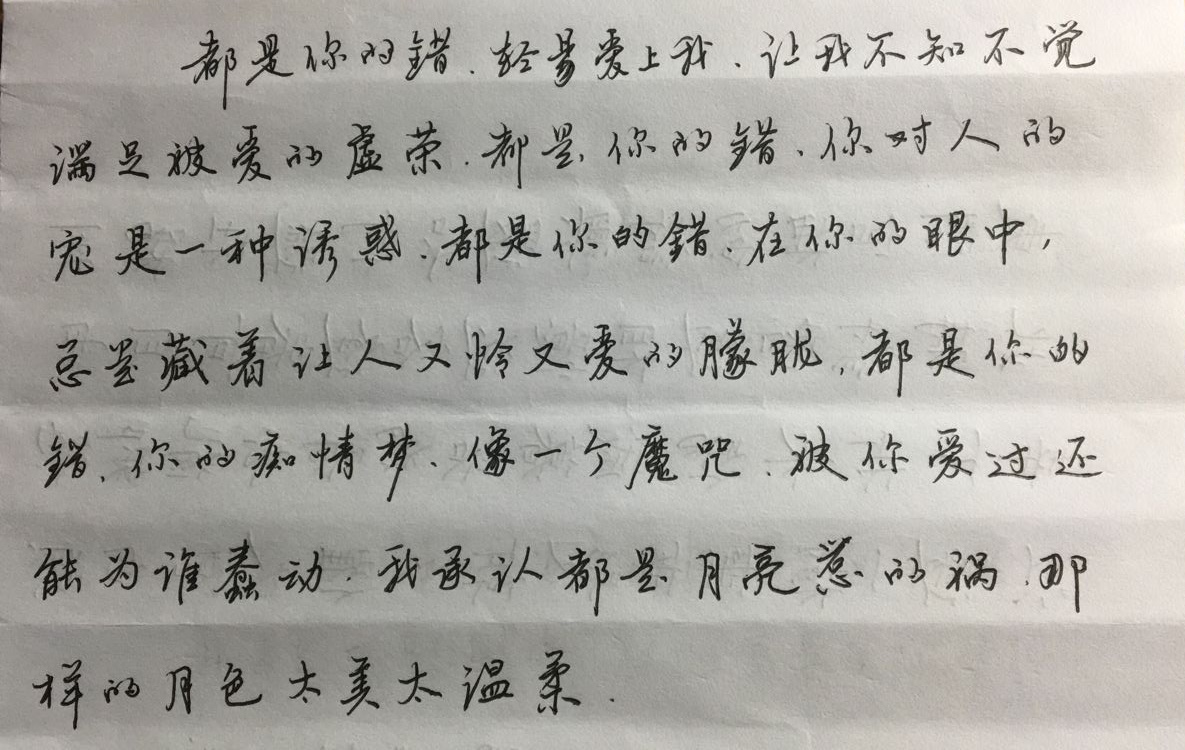 都是你的错、轻易爱上我、让我不知不觉
满足被爱的虚荣、都是你的错、你对人的
宠是一种诱惑、都是你的错、在你的眼中，
总是藏着让人又怜又爱的朦胧，都是你的
错、你的痴情梦、像一个魔咒、被你爱过还
能为谁蠢动、我承认都是月亮惹的祸、那
样的月色太美太温柔.